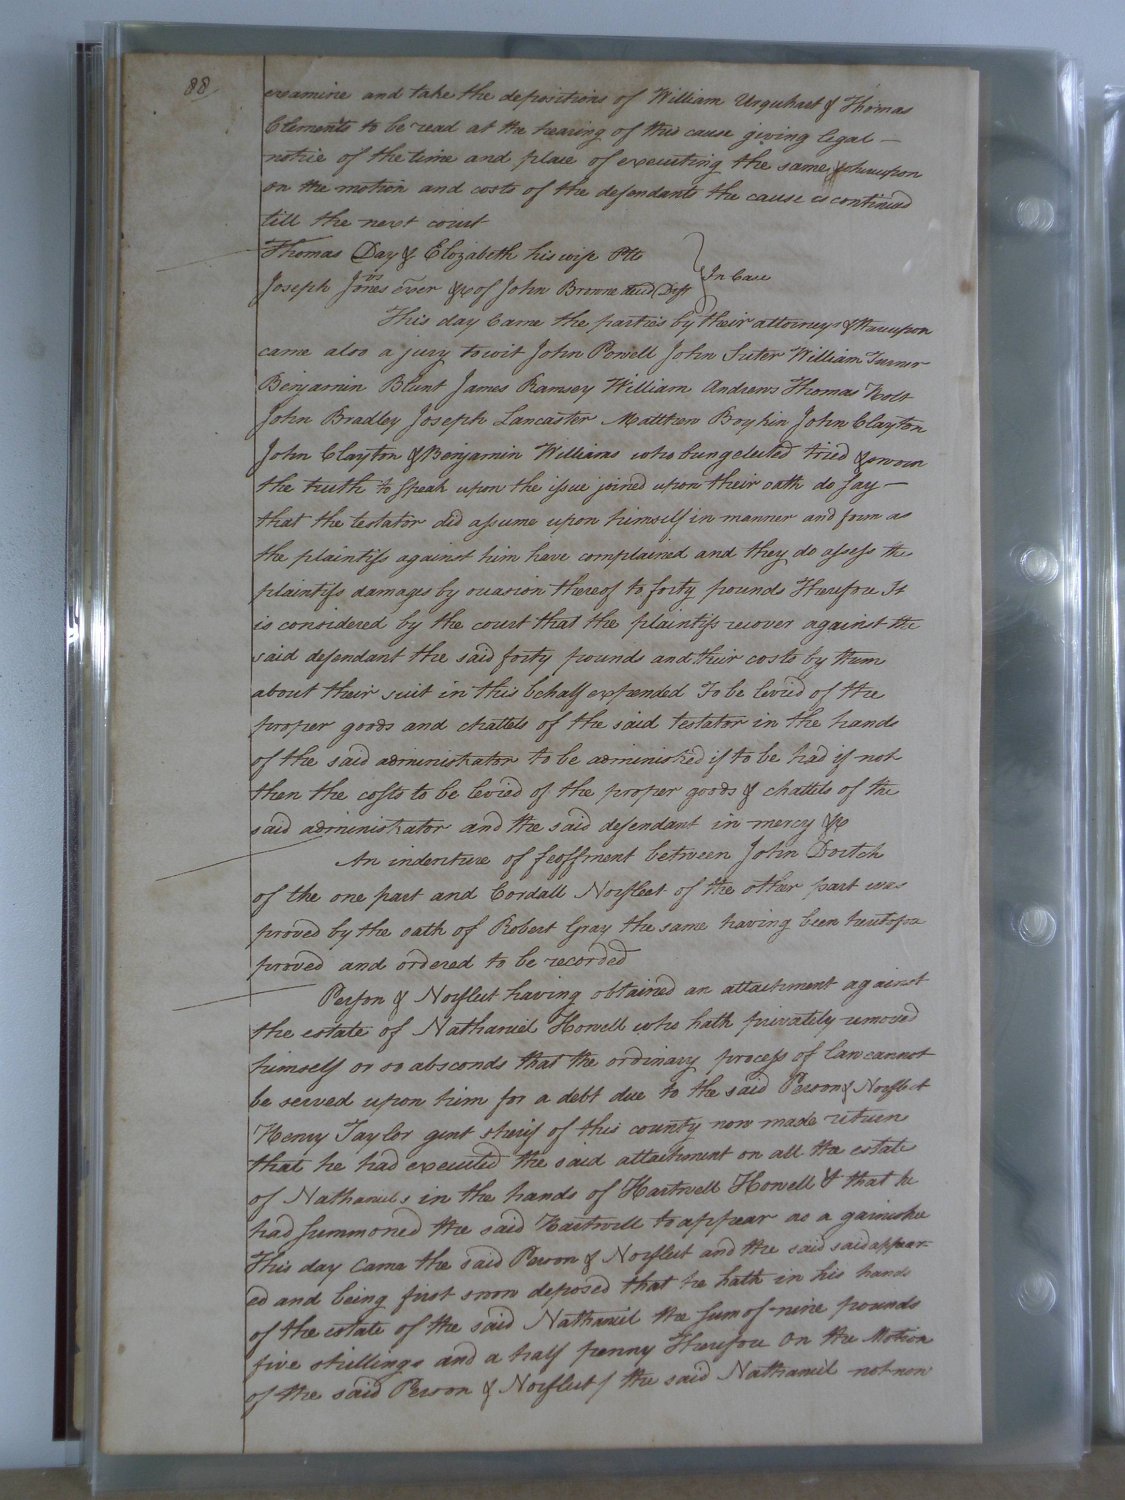 88
examine and take the depositions of William Urquhart & Thomas
Clements to be read at the hearing of this cause giving legal —
notice of the time and place of executing the same & whereupon
on the motion and costs of the defendants the cause is continued
till the next court
Thomas Day & Elizabeth his wife Plts
Joseph Jones exer &c of John Browne decd Deft } In Case
This day came the parties by their attorneys & thereupon
came also a jury to wit John Powell John Suter William Turner
Benjamin Blunt James Ramsey William Andrews Thomas Holt
John Bradley Joseph Lancaster Matthew Boykin John Clayton
John Clayton & Benjamin Williams who being elected tried & sworn
the truth to speak upon the issue joined upon their oath do say —
that the testator did assume upon himself in manner and form as
the plaintiffs against him have complained and they do assess the
plaintiffs damages by occasion thereof to forty pounds Therefore It
is considered by the court that the plaintiffs recover against the
said defendant the said forty pounds and their costs by them
about their suit in this behalf expended To be levied of the
proper goods and chattels of the said testator in the hands
of the said administrator to be administred if to be had if not
then the costs to be levied of the proper goods & chattels of the
said administrator and the said defendant in mercy &c
An indenture of feoffment between John Dortch
of the one part and Cordall Norfleet of the other part was
proved by the oath of Robert Gray the same having been heretofore
proved and ordered to be recorded
Person & Norfleet having obtained an attachment against
the estate of Nathaniel Howell who hath privately removed
himself or so absconds that the ordinary process of law cannot
be served upon him for a debt due to the said Person & Norfleet
Henry Taylor gent sherif of this county now made return
that he had executed the said attachment on all the estate
of Nathaniels in the hands of Hartwell Howell & that he
had summoned the said Hartwell to appear as a garnishee
This day came the said Person & Norfleet and the said said appear-
ed and being first sworn deposed that he hath in his hands
of the estate of the said Nathaniel the sum of nine pounds
five shillings and a half penny Therefore On the Motion
of the said Person & Norfleet / the said Nathaniel not now